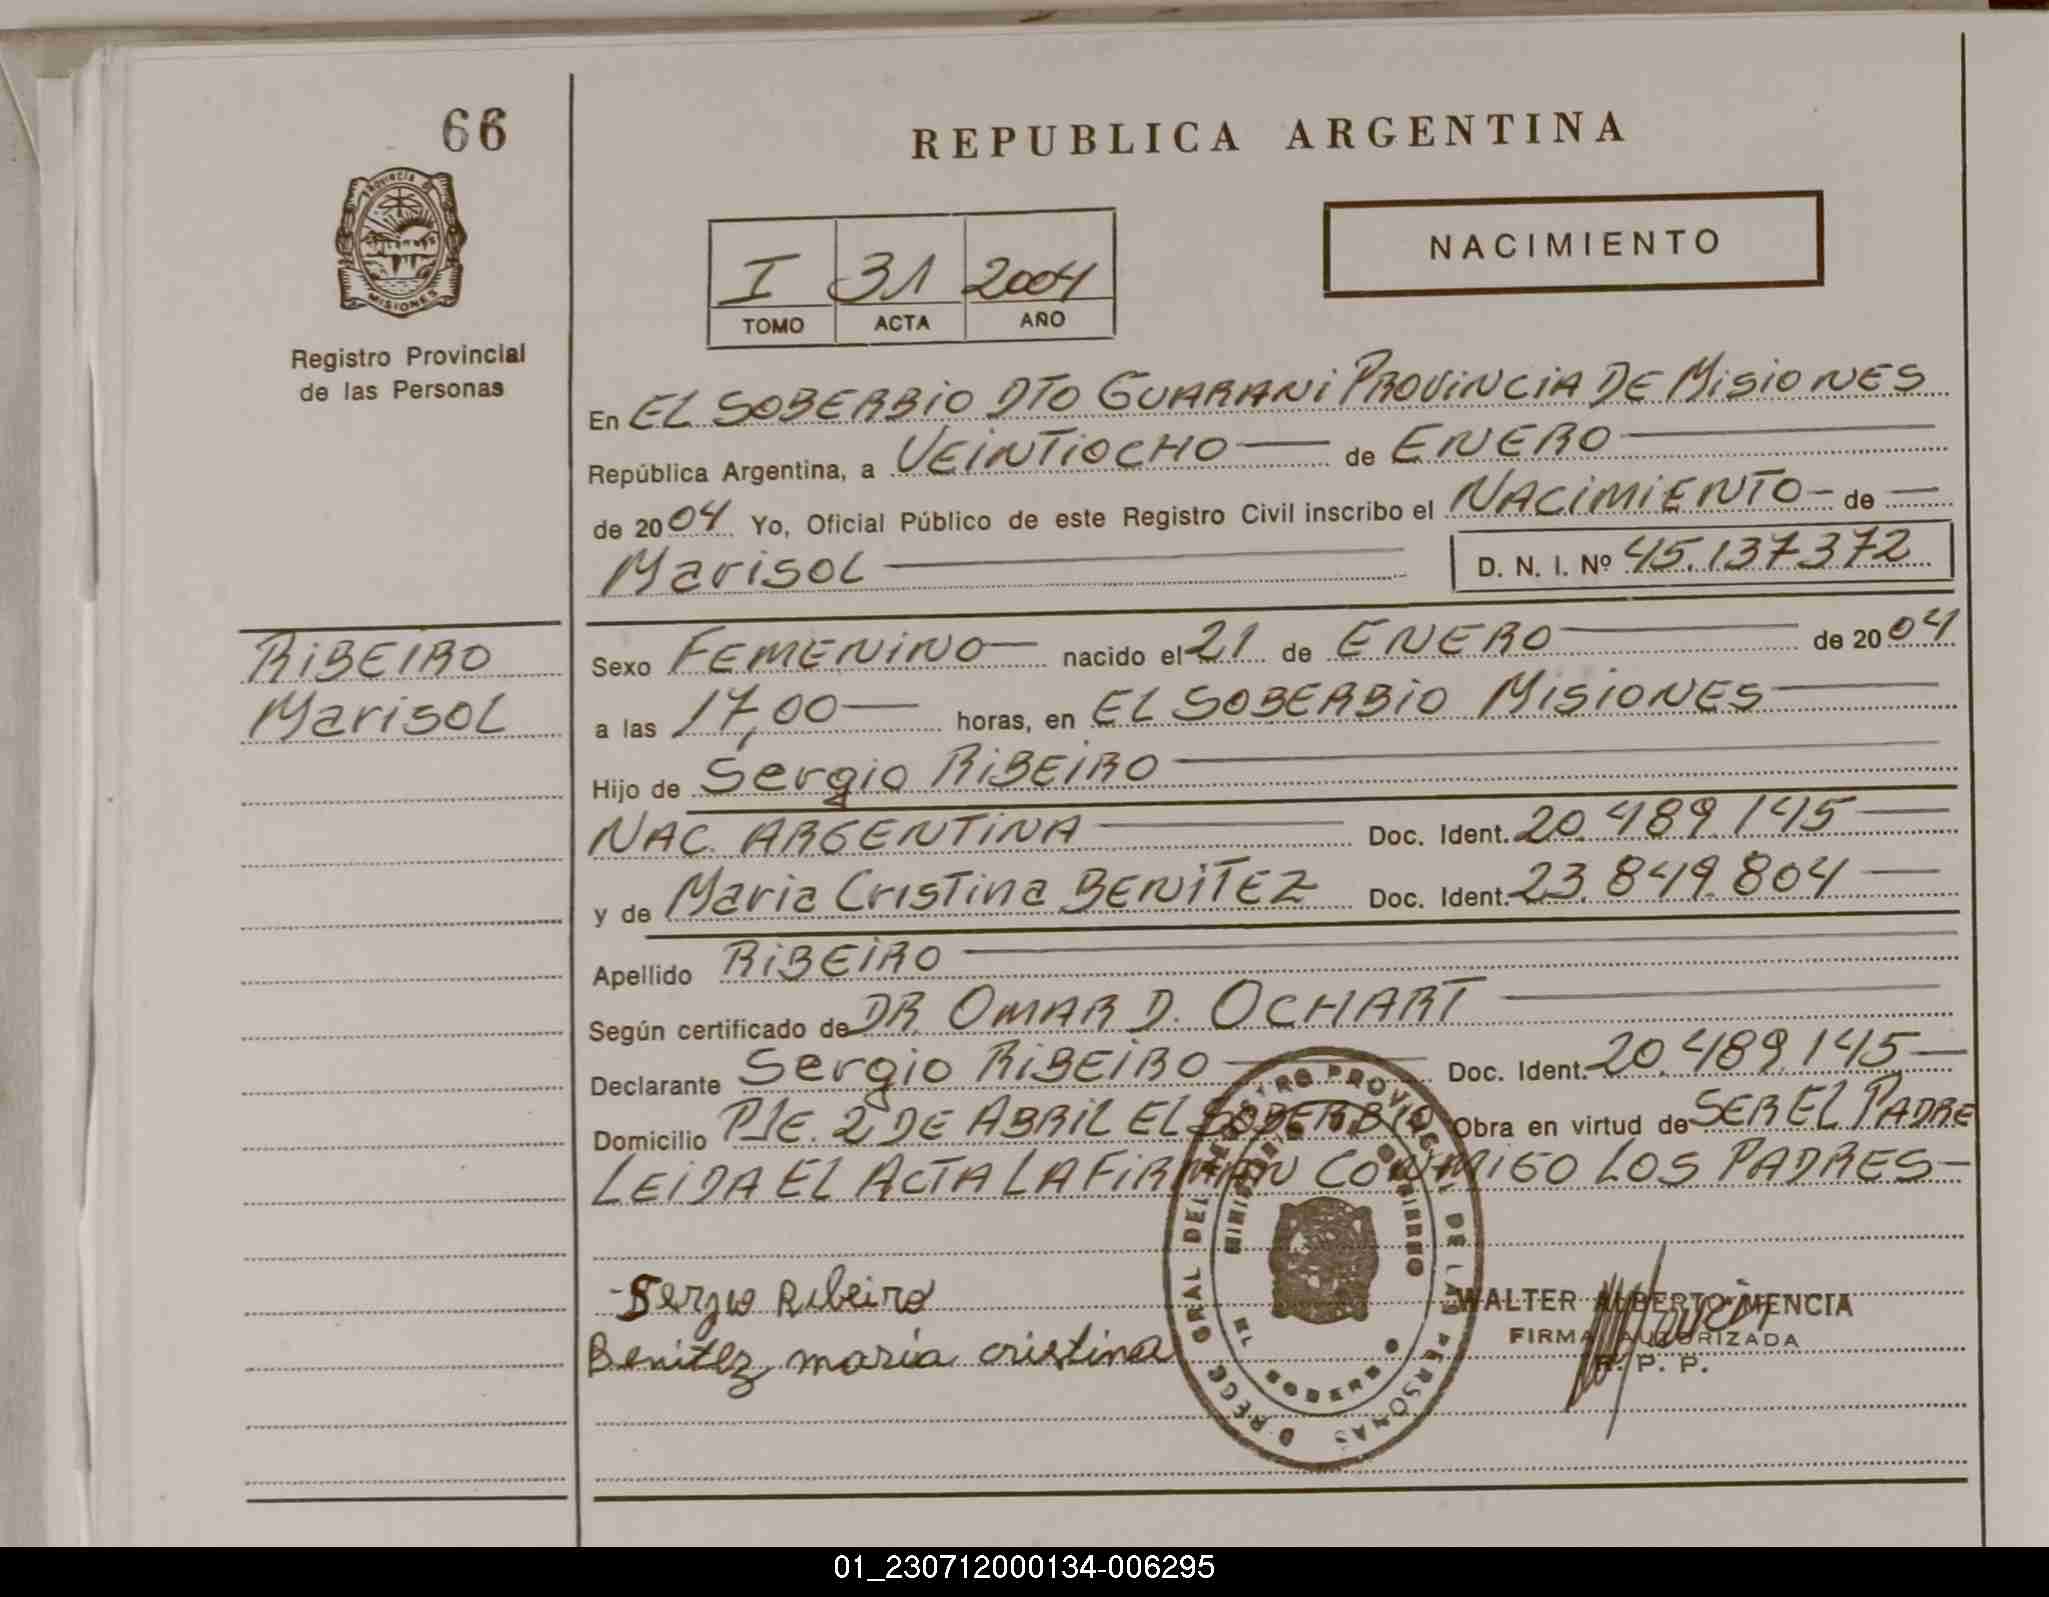 66
REPUBLICA ARGENTINA
PROVINCIA DE
MISIONES
NACIMIENTO
I 31 2004
TOMO ACTA AÑO
Registro Provincial
de las Personas
En EL SOBERBIO DTO GUARANI PROVINCIA DE MISIONES
República Argentina, a VEINTIOCHO de ENERO
de 2004 Yo, Oficial Público de este Registro Civil inscribo el NACIMIENTO de
Marisol D. N. I. Nº 45.137372
RIBEIRO
Marisol
Sexo FEMENINO nacido el 21 de ENERO de 2004
a las 17,00 horas, en EL SOBERBIO MISIONES
Hijo de Sergio RIBEIRO
NAC. ARGENTINA Doc. Ident. 20.489.145
y de Maria Cristina BENITEZ Doc. Ident. 23.849.804
Apellido RIBEIRO
Según certificado de DR OMAR D. OCHART
Declarante Sergio RIBEIRO Doc. Ident. 20.489.145
Domicilio PJE. 2 DE ABRIL EL SOBERBIO Obra en virtud de SER EL PADRE
LEIDA EL ACTA LA FIRMAN CONMIGO LOS PADRES
Sergio Ribeiro
Benitez maria cristina
WALTER ALBERTO MENCIA
FIRMA AUTORIZADA
R. P. P.
GRAL DEL REGISTRO PROVINCIAL DE LAS PERSONAS
MINISTERIO DE GOBIERNO
01_230712000134-006295